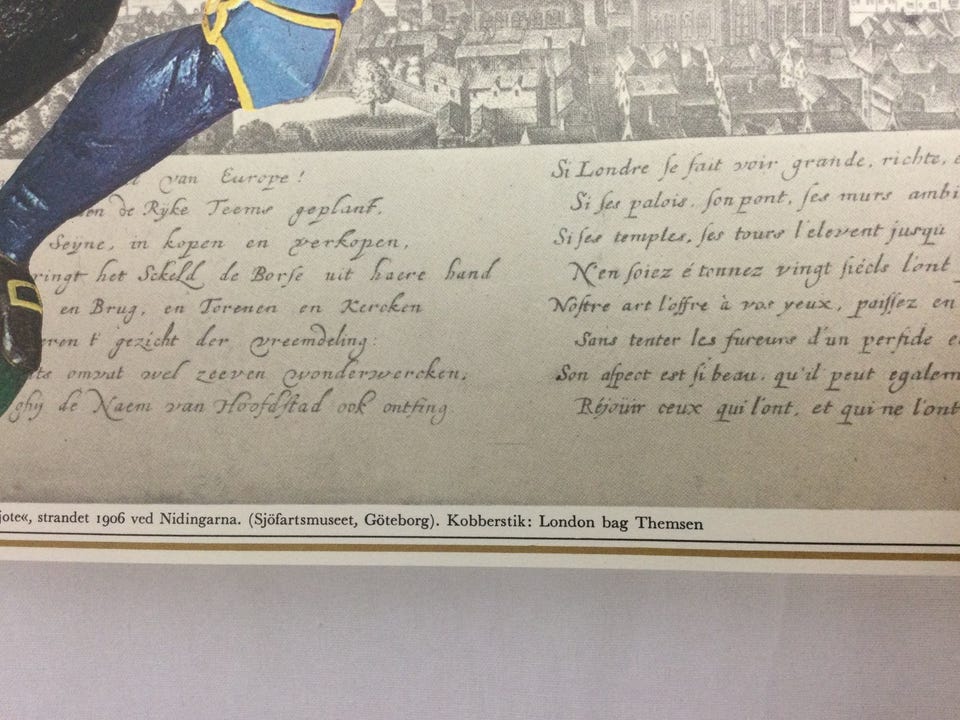 van Europe!
en de Ryke Teems geplant,
Seyne, in kopen en verkopen,
ringt het Scheld de Borse uit haere hand
en Brug, en Torenen en Kercken
eren t' gezicht der vreemdeling:
omvat wel zeeven wonderwercken,
ghij de Naem van Hoofdstad ook ontfing
Si Londre se fait voir grande, richte,
Si ses palois, son pont, ses murs ambi
Si ses temples, ses tours l'elevent jusqu
N'en soiez étonnez vingt siécls l'ont
Nostre art l'offre à vos yeux, paissez en
Sans tenter les fureurs d'un perfide e
Son aspect est si beau, qu'il peut egalem
Réjoüir ceux qui l'ont, et qui ne l'ont
jote«, strandet 1906 ved Nidingarna. (Sjöfartsmuseet, Göteborg). Kobberstik: London bag Themsen